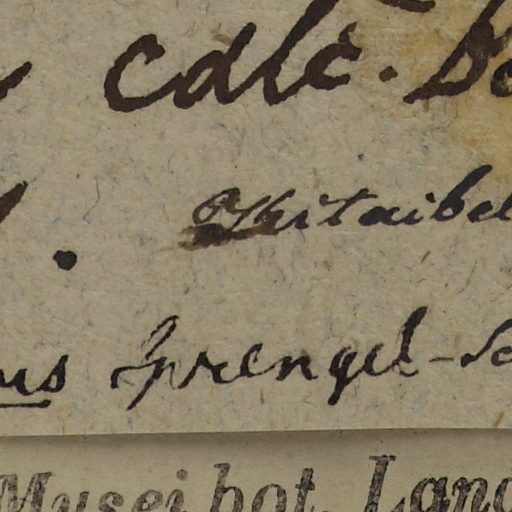 calc.
Kitaibel
us Sprengel-
Musei bot. Land